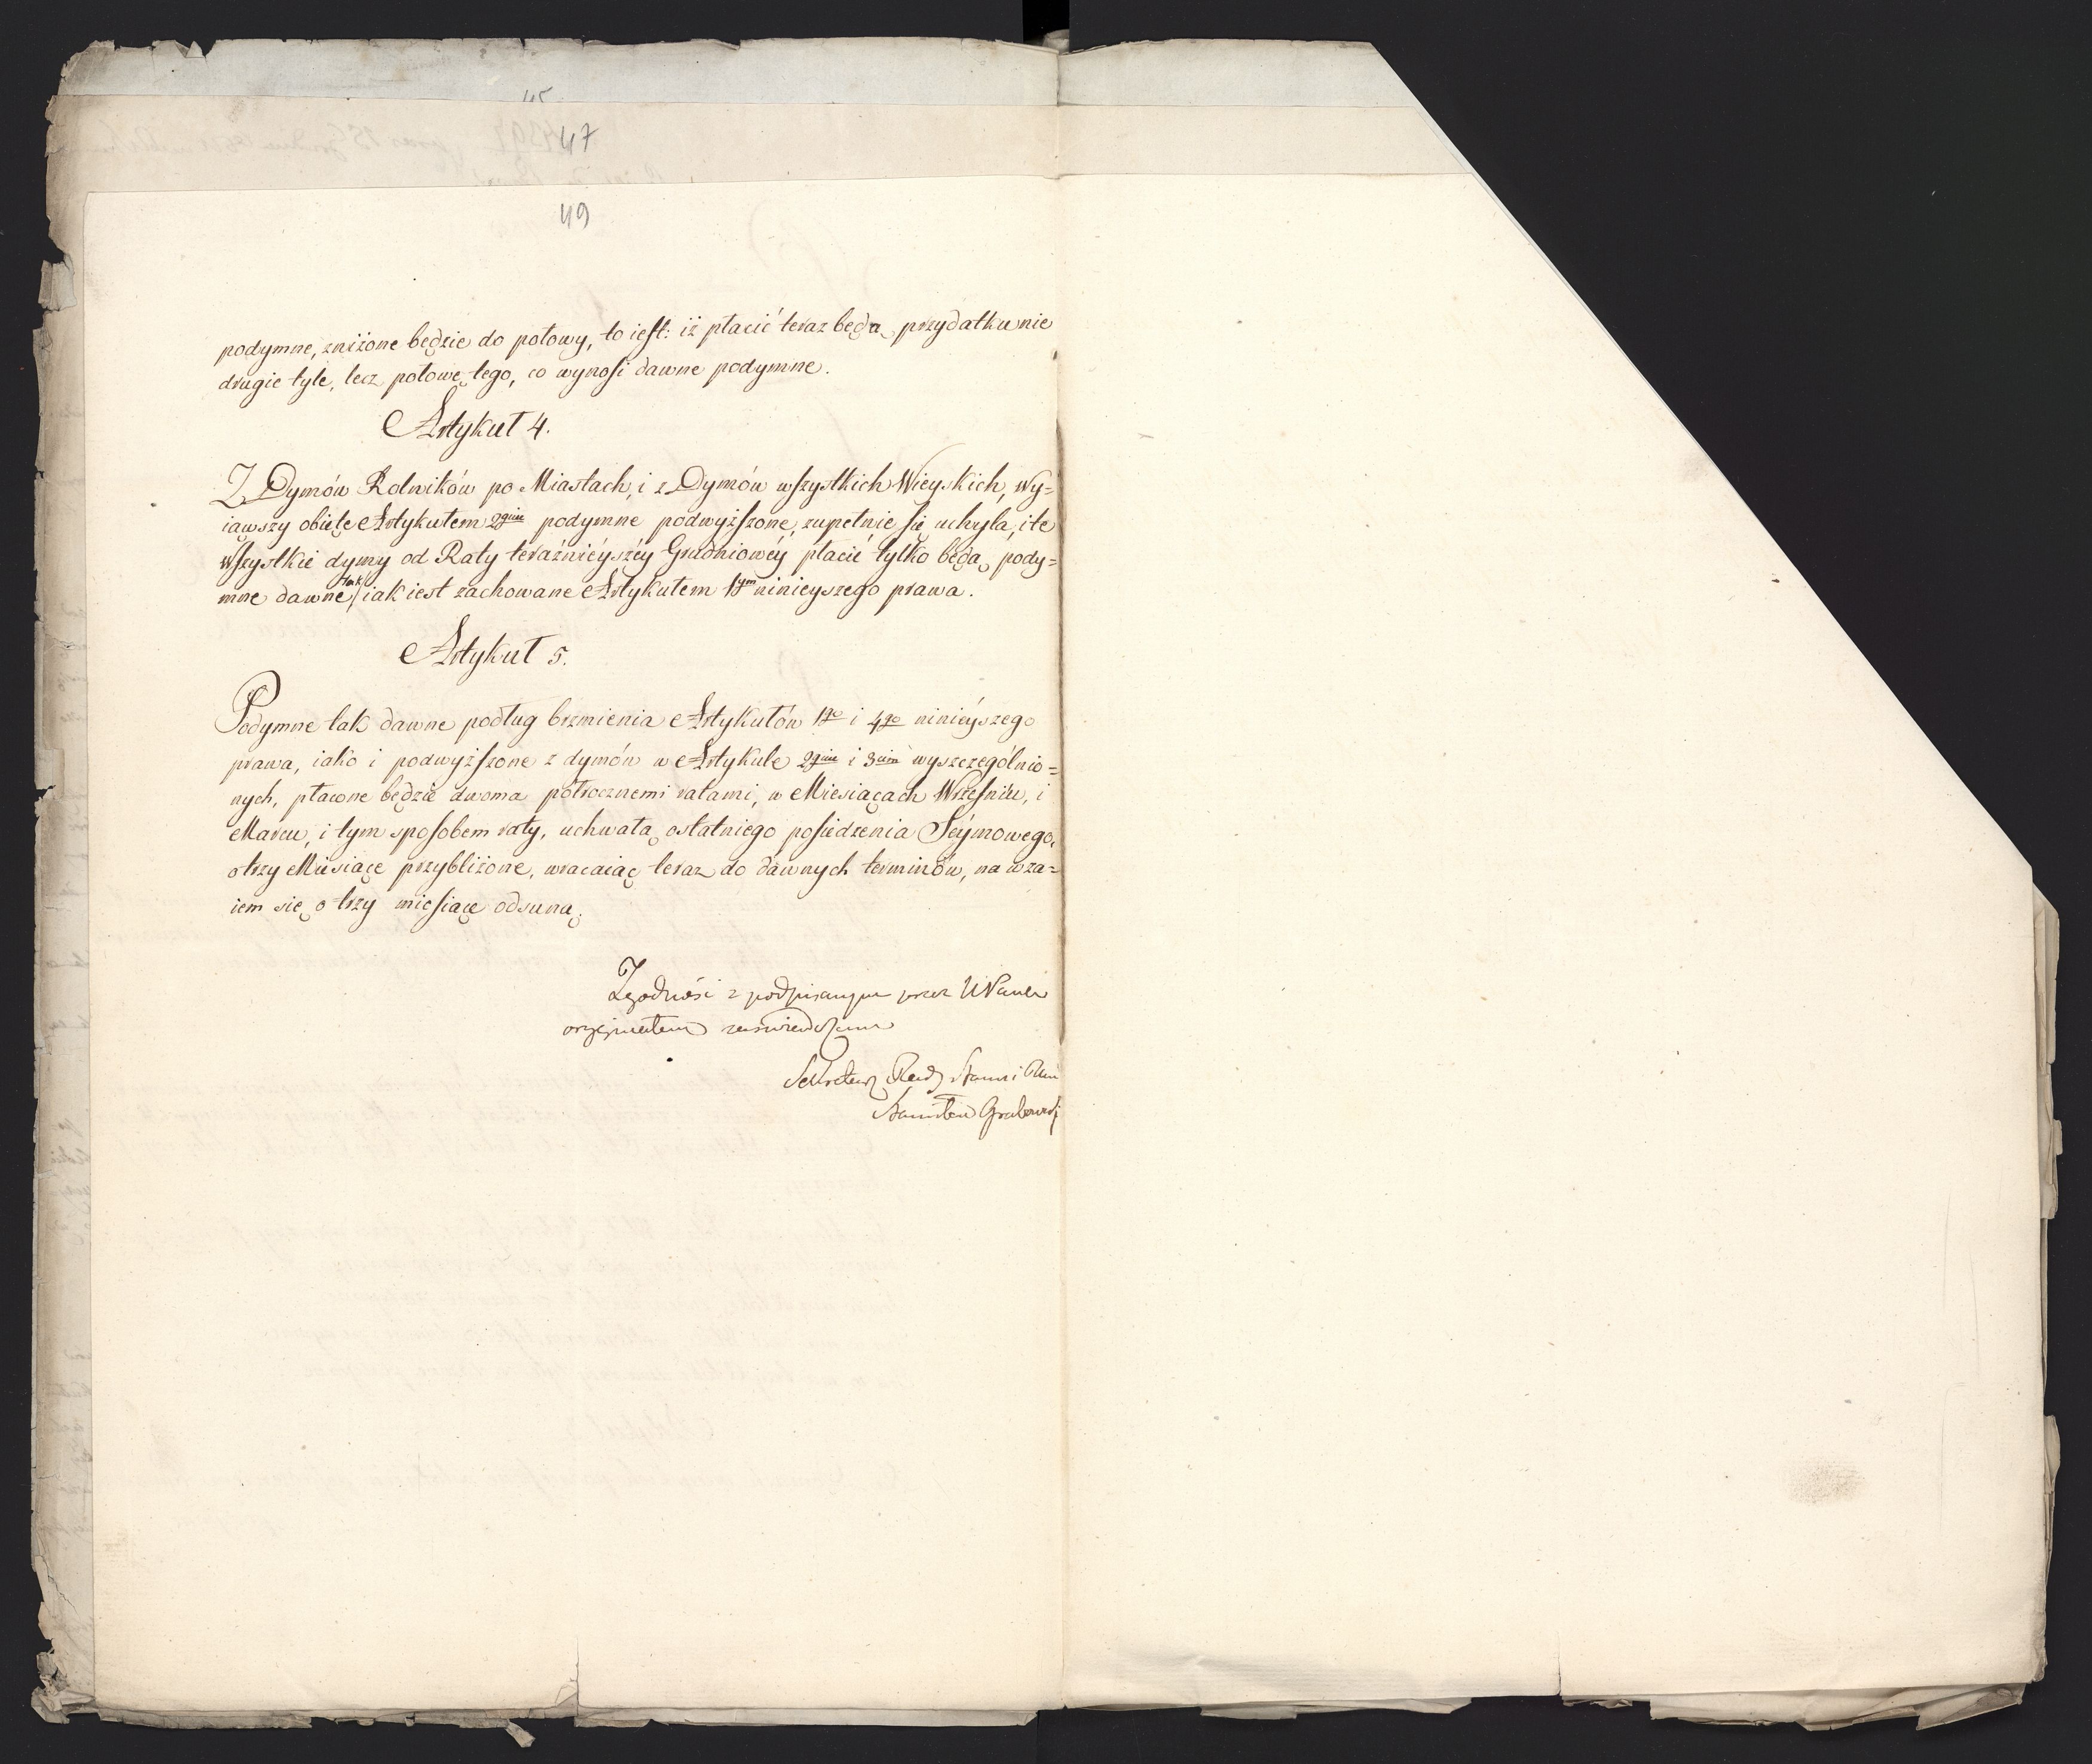 45
47
49
podymne, zniżone będzie do połowy, to iest: iż płacić teraz będą, przydatku nie
drugie tyle, lecz połowę tego, co wynosi dawne podymne.
Artykuł 4.
Z Dymów Rolników po Miastach, i z Dymów wszystkich Wieyskich, wy=
iąwszy obięte Artykułem 2gim podymne podwyższone, zupełnie się uchyla, i te
wszystkie dymy od Raty teraźnieyszéy Grudniowéy płacić tylko będą pody=
mne dawne tak iak iest zachowane Artykułem 1ym ninieyszego prawa.
Artykuł 5.
Podymne tak dawne podług brzmienia Artykułów 1go i 4go ninieyszego
prawa, iako i podwyższone z dymów w Artykule 2gim i 3cim wyszczególnio=
nych, płacone będzie dwoma półrocznemi ratami, w Miesiącach Wrześniu, i
Marcu, i tym sposobem raty, uchwałą ostatniego posiedzenia Seymowego,
o trzy Miesiące przybliżone, wracaiąc teraz do dawnych terminów, nawza=
iem się o trzy miesiące odsuną.
Zgodność z podpisanym przez
oryginałem zaświadczam
Sekretarz Rady Stanu i
Stanisław Grabowski